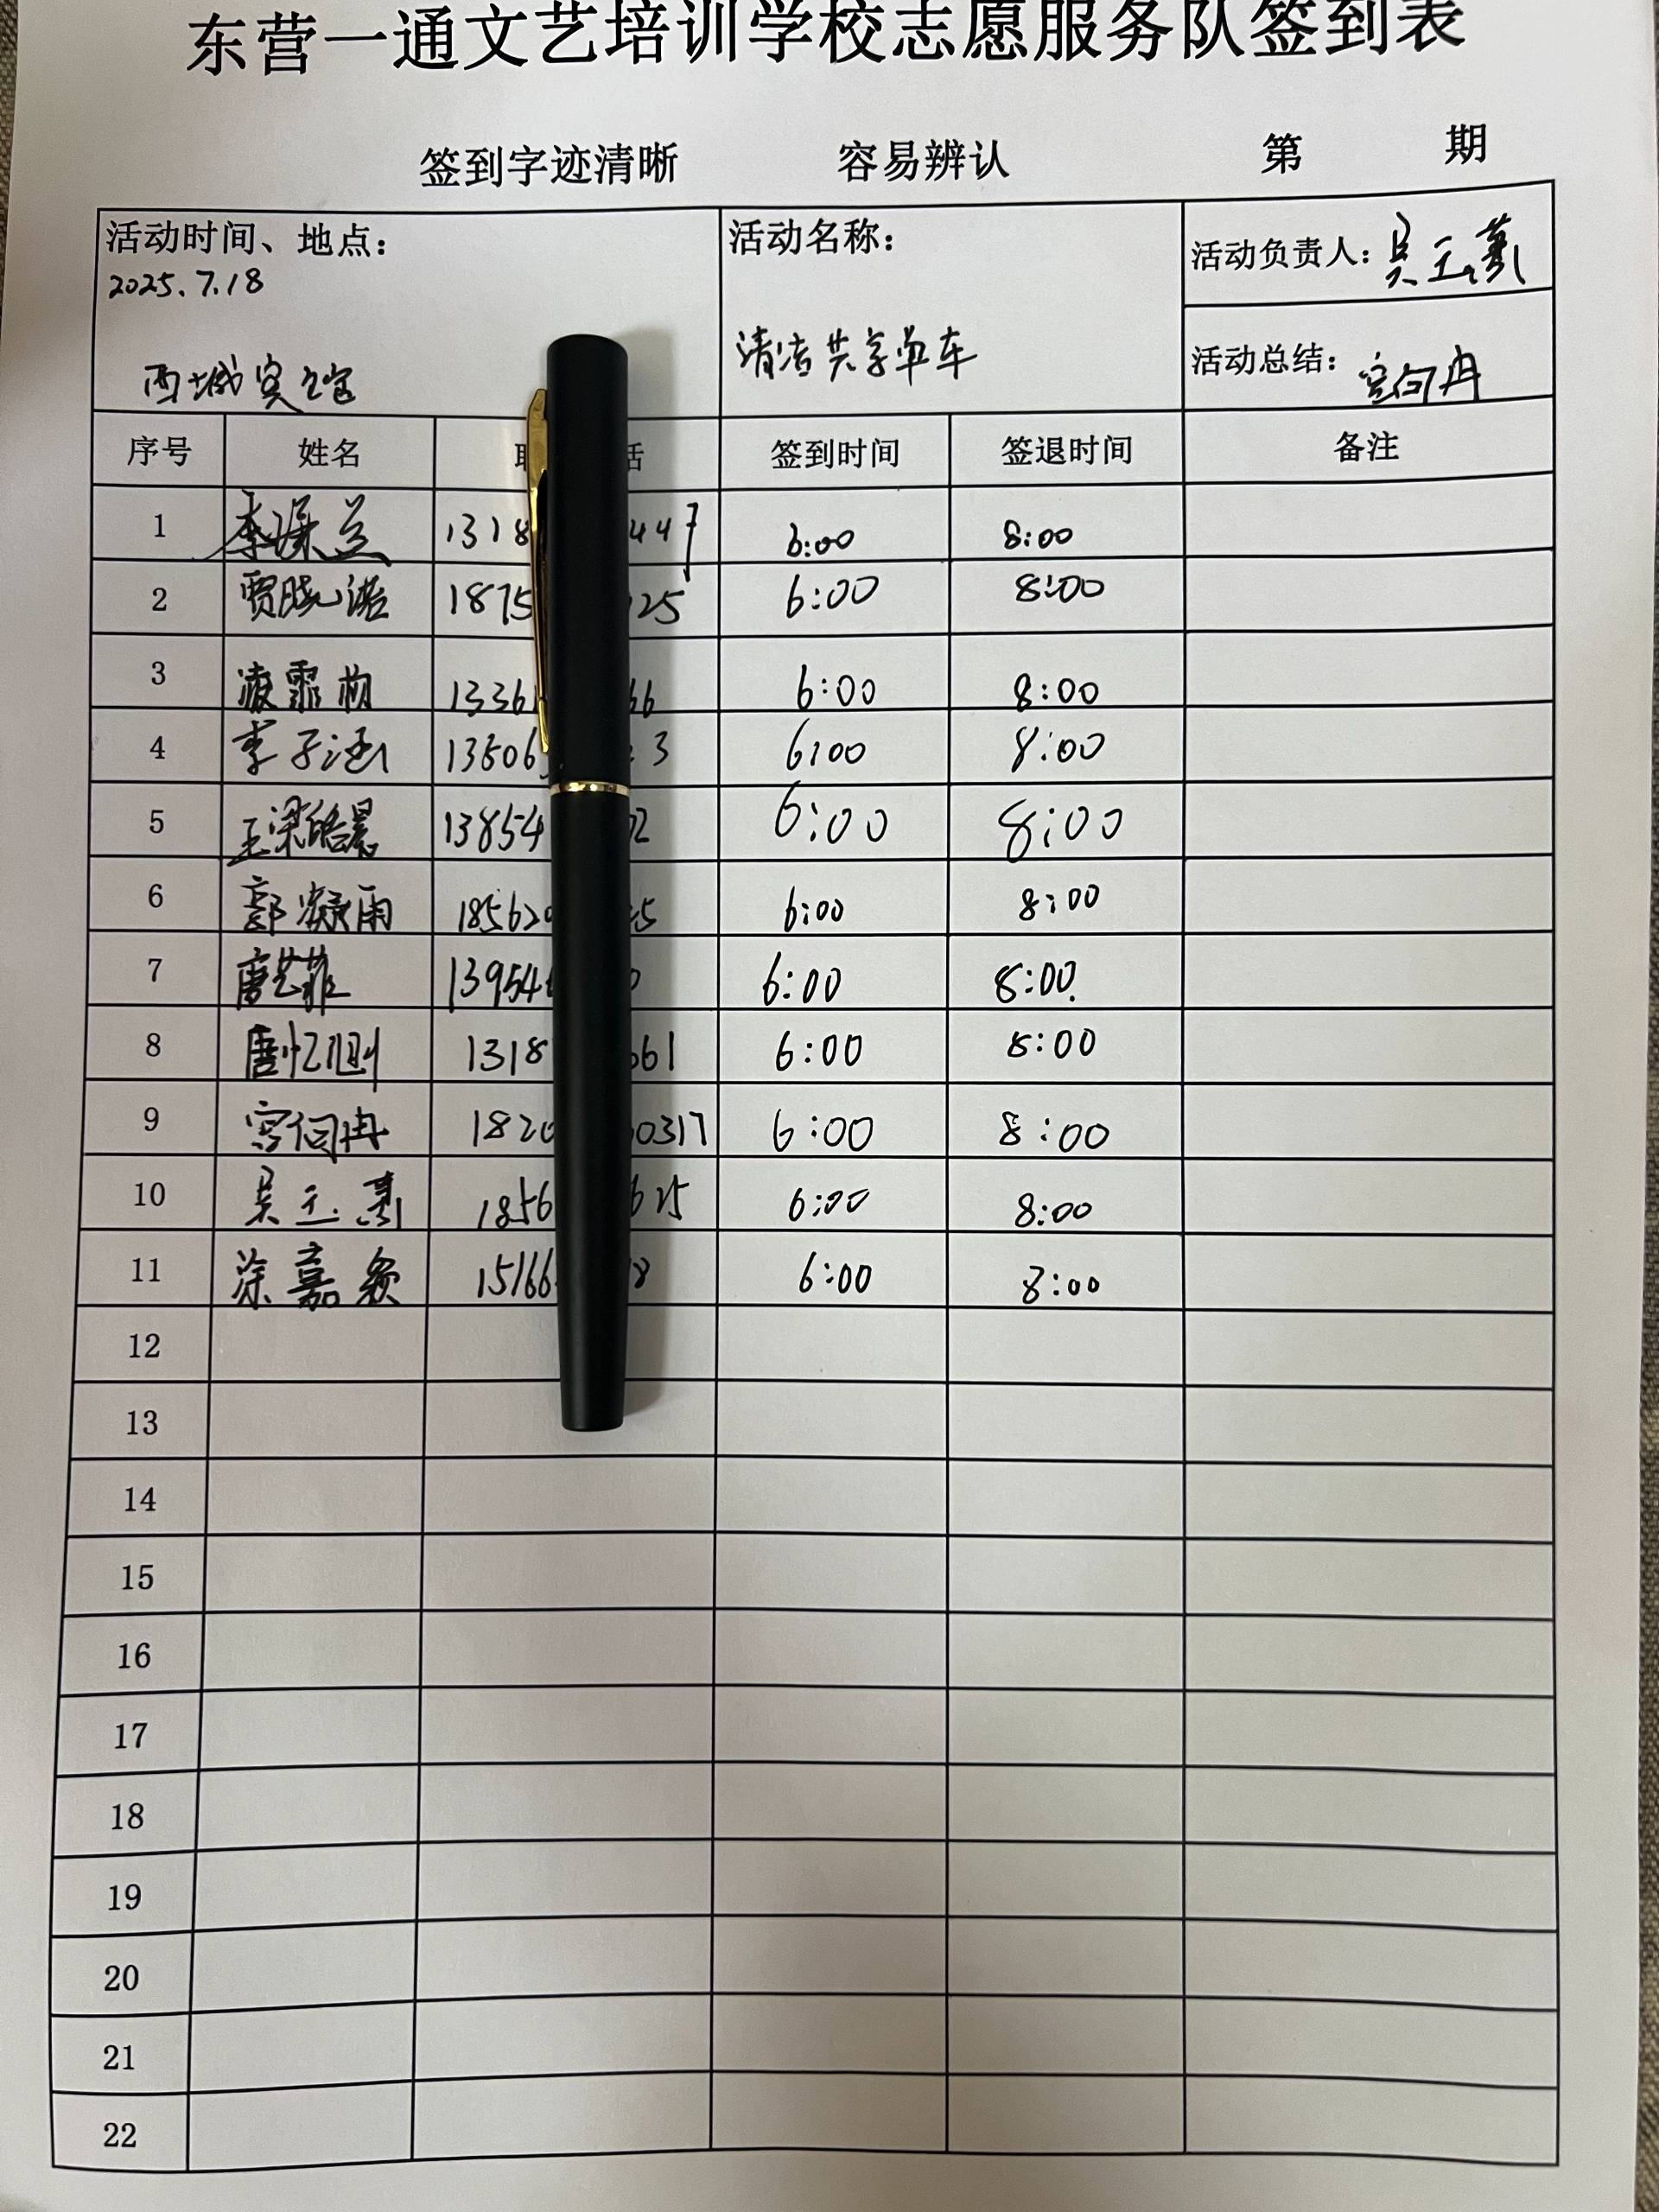 东营一通文艺培训学校志愿服务队签到表
签到字迹清晰 容易辨认 第 期
活动时间、地点：
2025.7.18
西城宾馆
活动名称：
清洁共享单车
活动负责人：吴玉
活动总结：宫向冉
序号 姓名 签到时间 签退时间 备注
1 李 1318 447 6:00 8:00
2 贾晓诺 1875 25 6:00 8:00
3 凌霏 1336 66 6:00 8:00
4 李子涵 13506 3 6:00 8:00
5 王梁皓晨 13854 2 6:00 8:00
6 郭凝雨 18562 5 6:00 8:00
7 唐艺菲 13954 6:00 8:00
8 唐忆 1318 661 6:00 8:00
9 宫向冉 1820 0317 6:00 8:00
10 吴玉 1856 625 6:00 8:00
11 涂嘉 15166 8 6:00 8:00
12
13
14
15
16
17
18
19
20
21
22